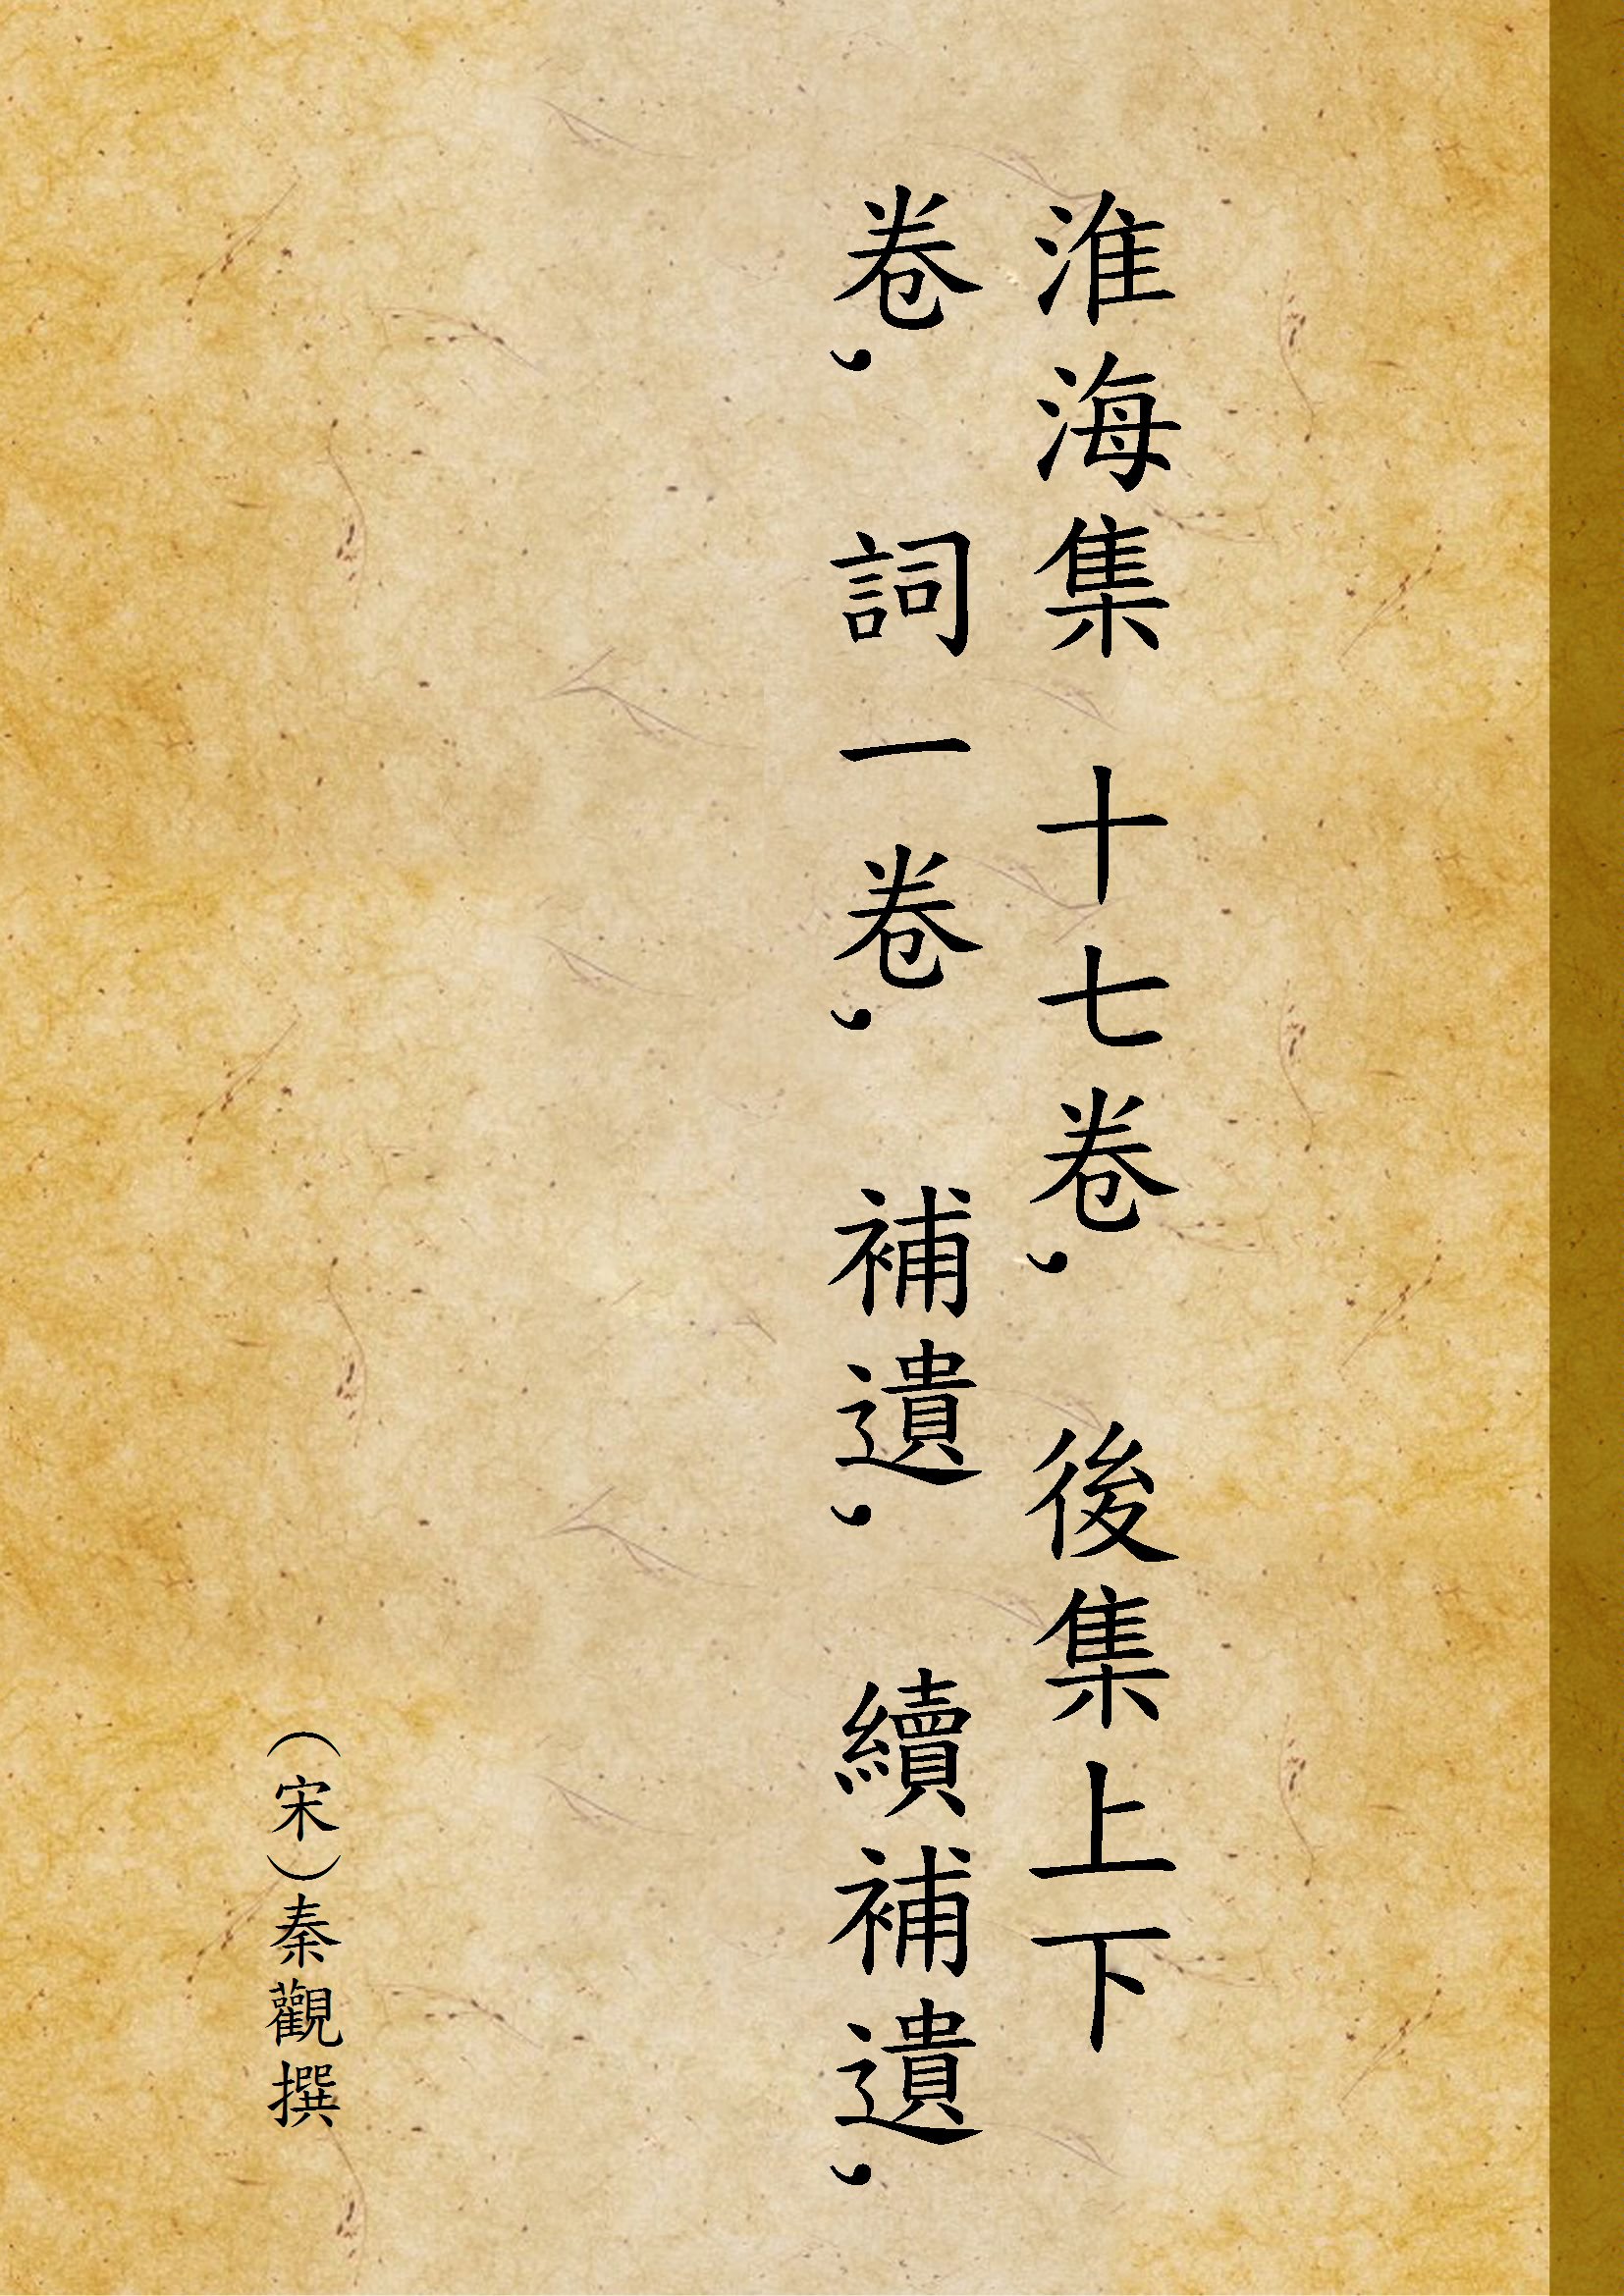 淮海集 十七卷, 後集上下
卷, 詞一卷, 補遺, 續補遺,
(宋)秦觀撰